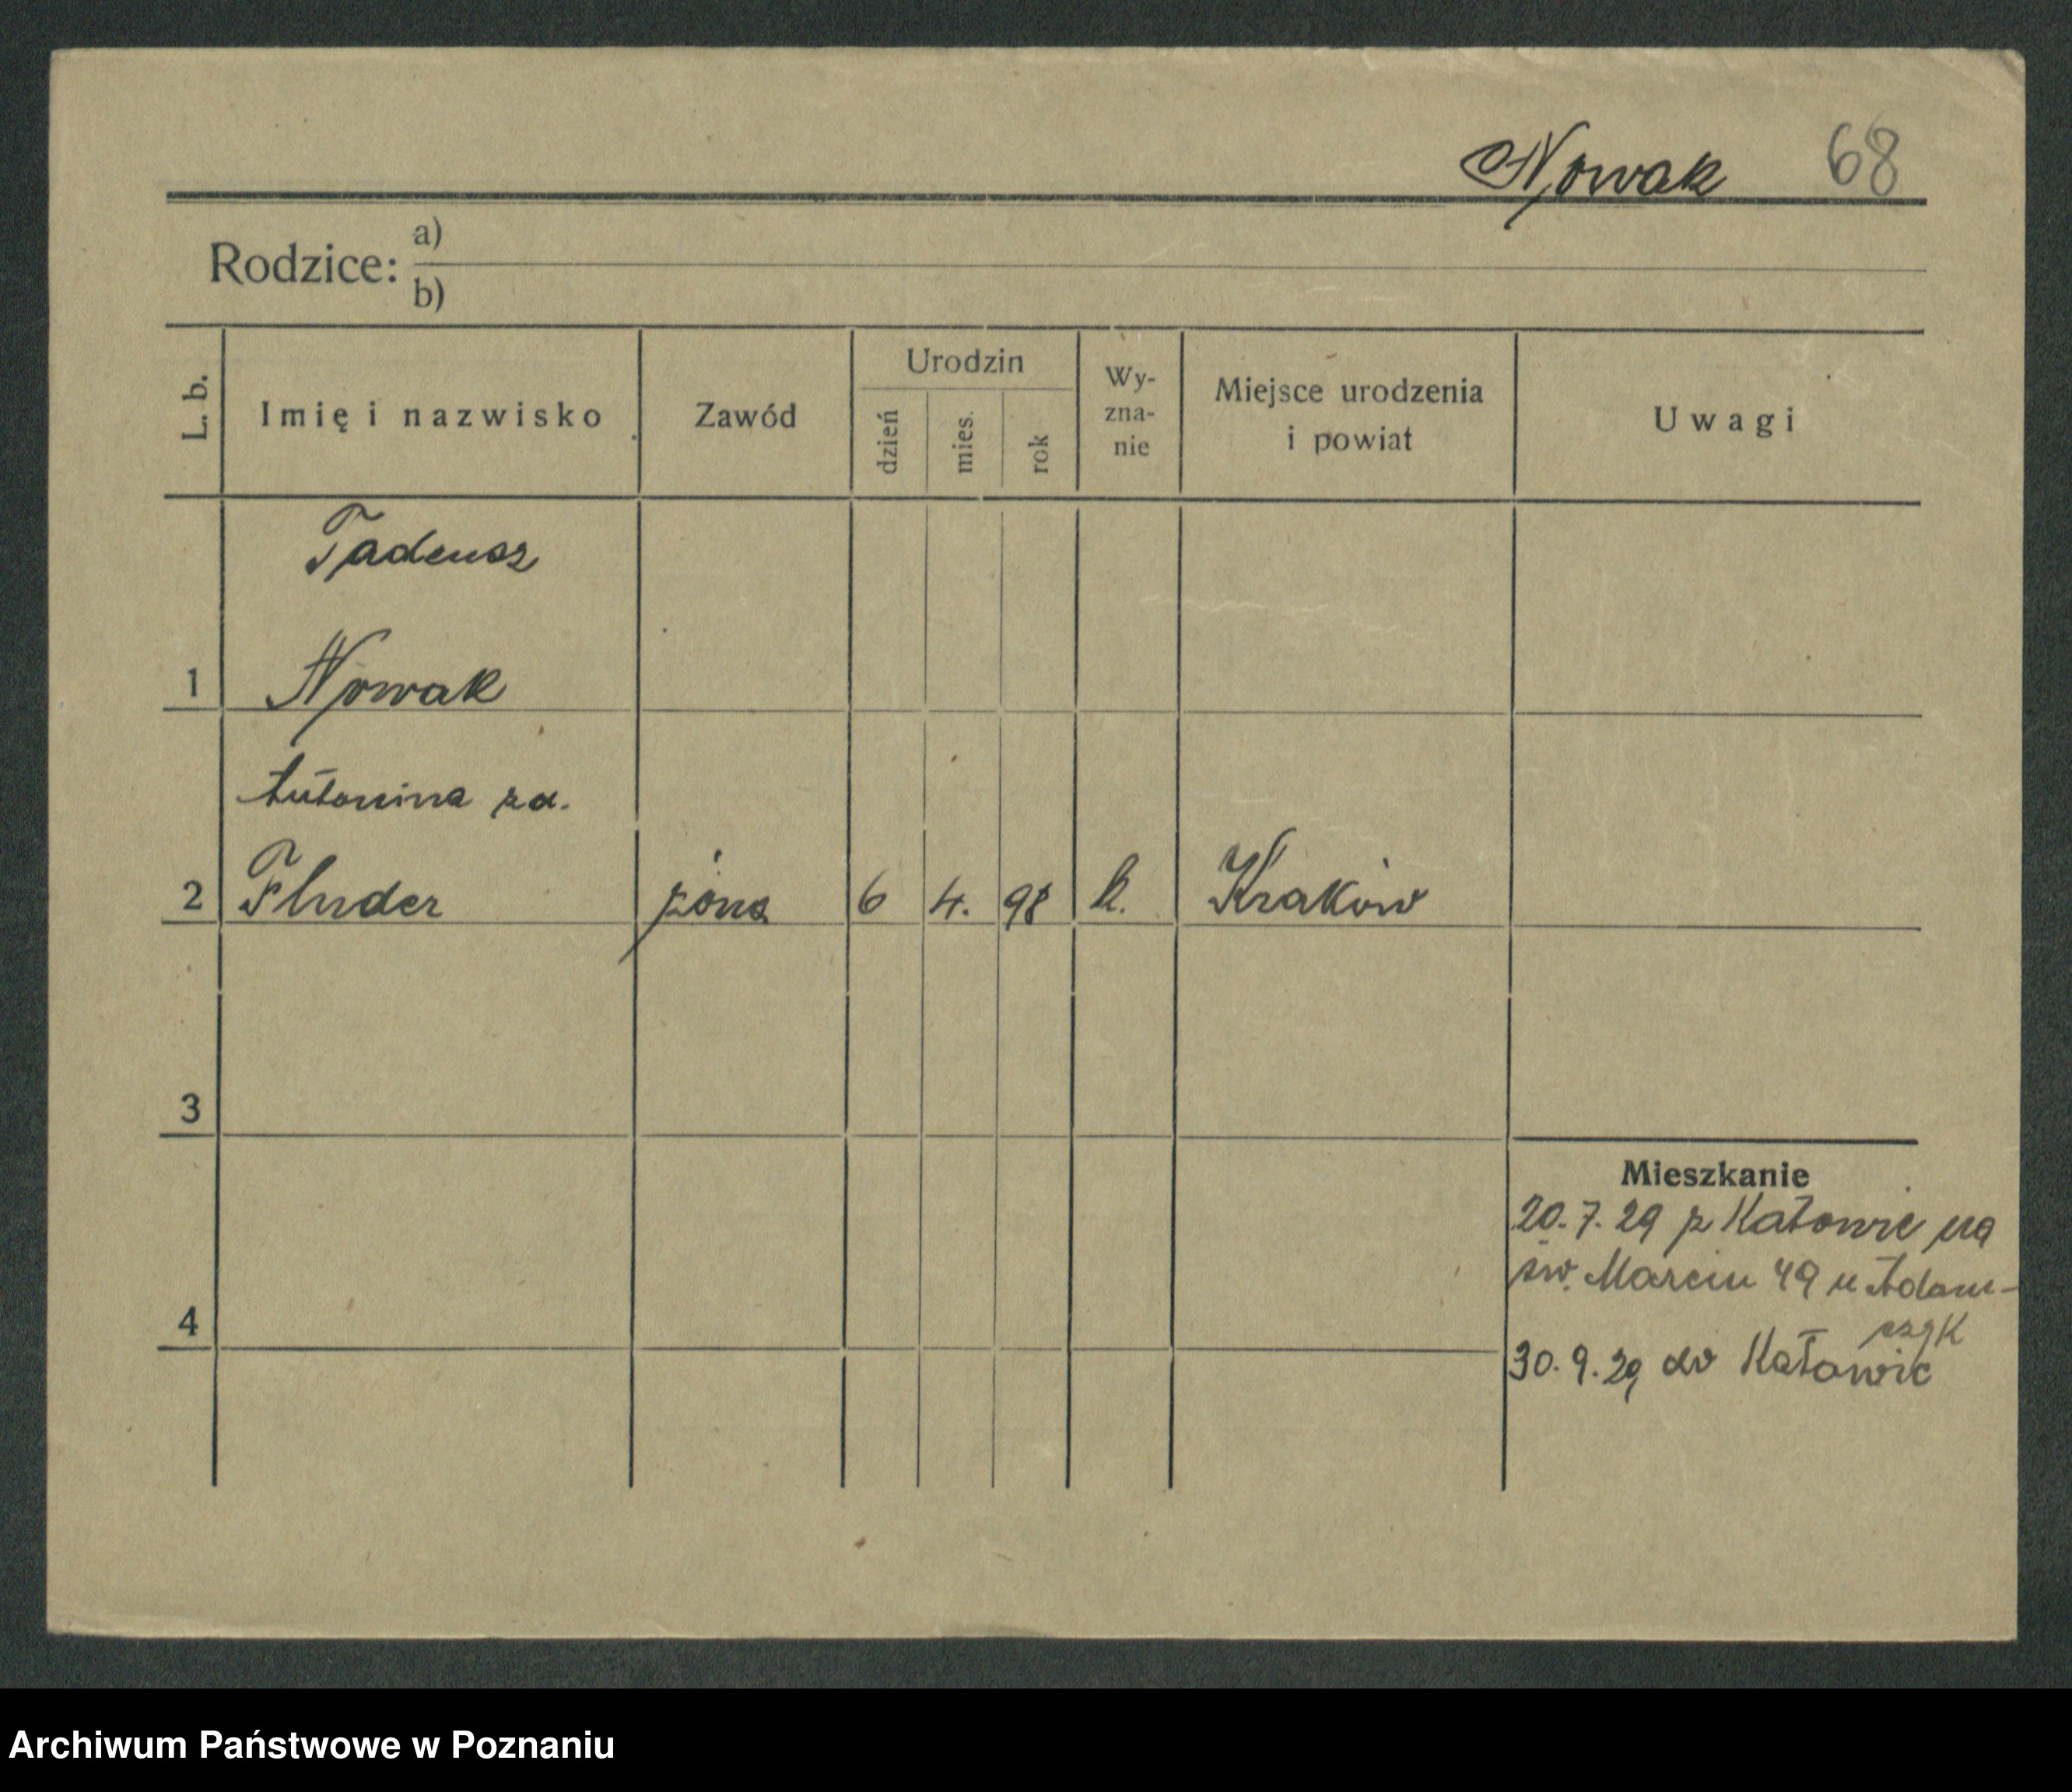 Nowak 68
Rodzice: a)
b)
L. b.
Imię i nazwisko
Zawód
Urodzin
dzień
mies.
rok
Wy-
zna-
nie
Miejsce urodzenia
i powiat
Uwagi
Tadeusz
1 Nowak
Antonina zd.
2 Fluder żona 6 4. 98 k. Kraków
3
Mieszkanie
20.7.29 z Katowic na
św. Marcin 49 u Adam-
czyk
4
30.9.29 do Katowic
Archiwum Państwowe w Poznaniu